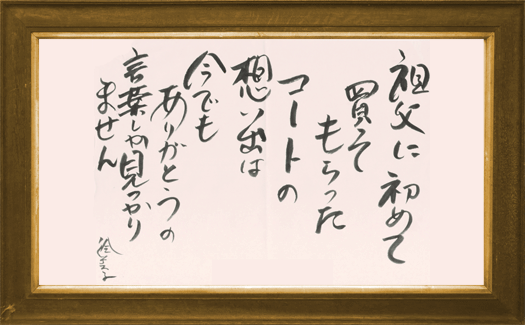 祖父に初めて
買って
もらった
コートの
想い出は
今でも
ありがとうの
言葉しか見つかり
ません